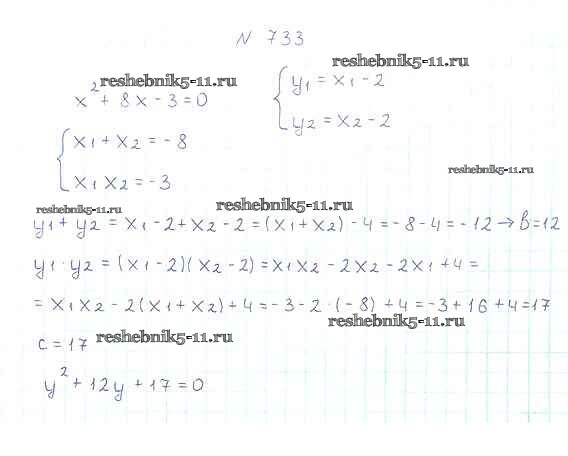 N 733
reshebnik5-11.ru
reshebnik5-11.ru
x² + 8x - 3 = 0
y1 = x1 - 2
y2 = x2 - 2
x1 + x2 = -8
x1 x2 = -3
reshebnik5-11.ru
reshebnik5-11.ru
reshebnik5-11.ru
y1 + y2 = x1 - 2 + x2 - 2 = (x1 + x2) - 4 = -8 - 4 = -12 → b = 12
y1 · y2 = (x1 - 2)(x2 - 2) = x1x2 - 2x2 - 2x1 + 4 =
= x1x2 - 2(x1 + x2) + 4 = -3 - 2 · (-8) + 4 = -3 + 16 + 4 = 17
reshebnik5-11.ru
reshebnik5-11.ru
c = 17
y² + 12y + 17 = 0